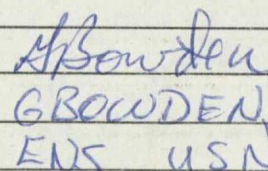 GBowden
GBOWDEN,
ENS USN